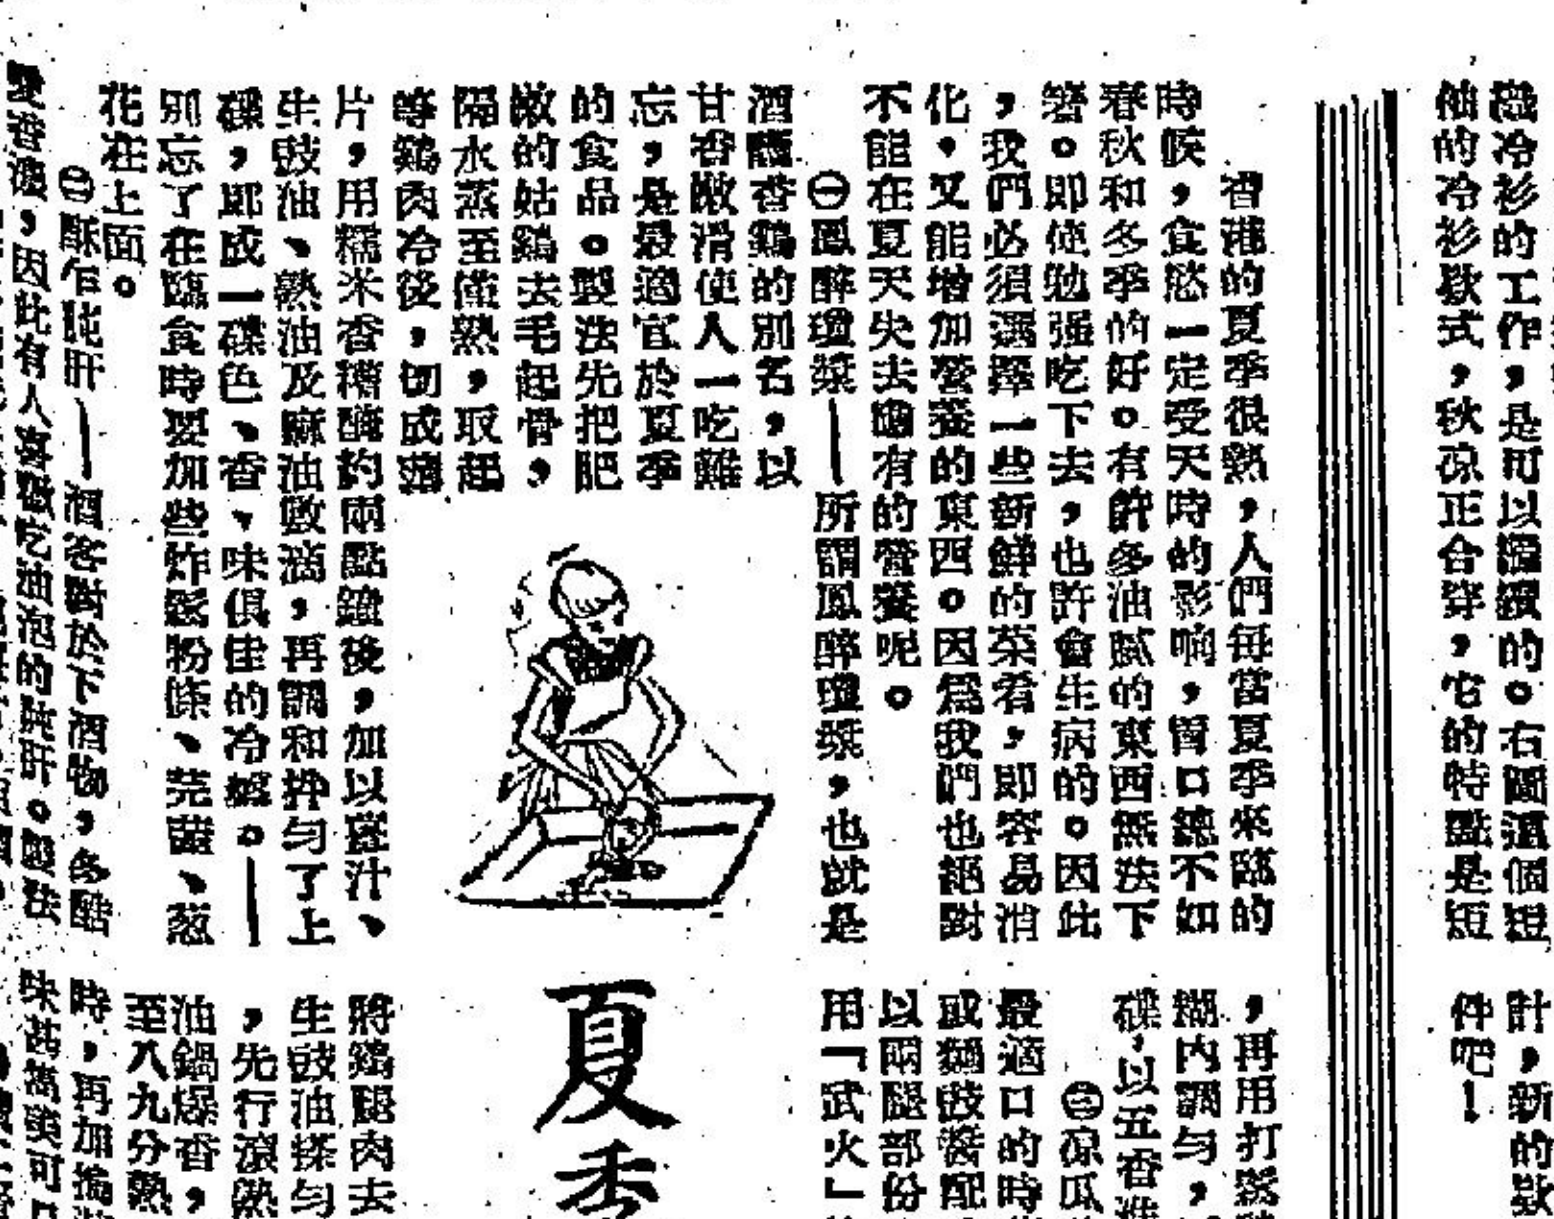 織冷衫的工作，是可以繼續的。右圖這個短
袖的冷衫欵式，秋凉正合穿，它的特點是短
香港的夏季很熱，人們每當夏季來臨的
時候，食慾一定受天時的影响，胃口總不如
春秋和冬季的好。有許多油膩的東西無法下
箸。即使勉强吃下去，也許會生病的。因此
，我們必須選擇一些新鮮的菜肴，即容易消
化，又能增加營養的東西。因爲我們也絕對
不能在夏天失去應有的營養呢。
㊀鳳醉瓊漿——所謂鳳醉瓊漿，也就是
酒釀香鷄的別名，以
甘香嫩滑使人一吃難
忘，是最適宜於夏季
的食品。製法先把肥
嫩的姑鷄去毛起骨，
隔水蒸至僅熟，取起
等鷄肉冷後，切成薄
片，用糯米香糟醃約兩點鐘後，加以薑汁、
生豉油、熟油及麻油數滴，再調和拌勻了上
碟，即成一碟色、香、味俱佳的冷盤。——
別忘了在臨食時要加些炸鬆粉條、芫茜、葱
花在上面。
㊁酥乍肫肝——酒客對於下酒物，多酷
愛香濃，因此有人喜歡吃油泡的肫肝。製法
計，新的欵
件吧！
，再用打鬆
糊內調勻，
碟，以五香淮
㊂凉瓜
最適口的時
或麵豉醬配
以兩腿部份
用「武火」
夏季
將鷄腿肉去
生豉油搽勻
，先行滾熟
油鍋爆香，
至八九分熟
時，再加搗
味甚濃爽可口